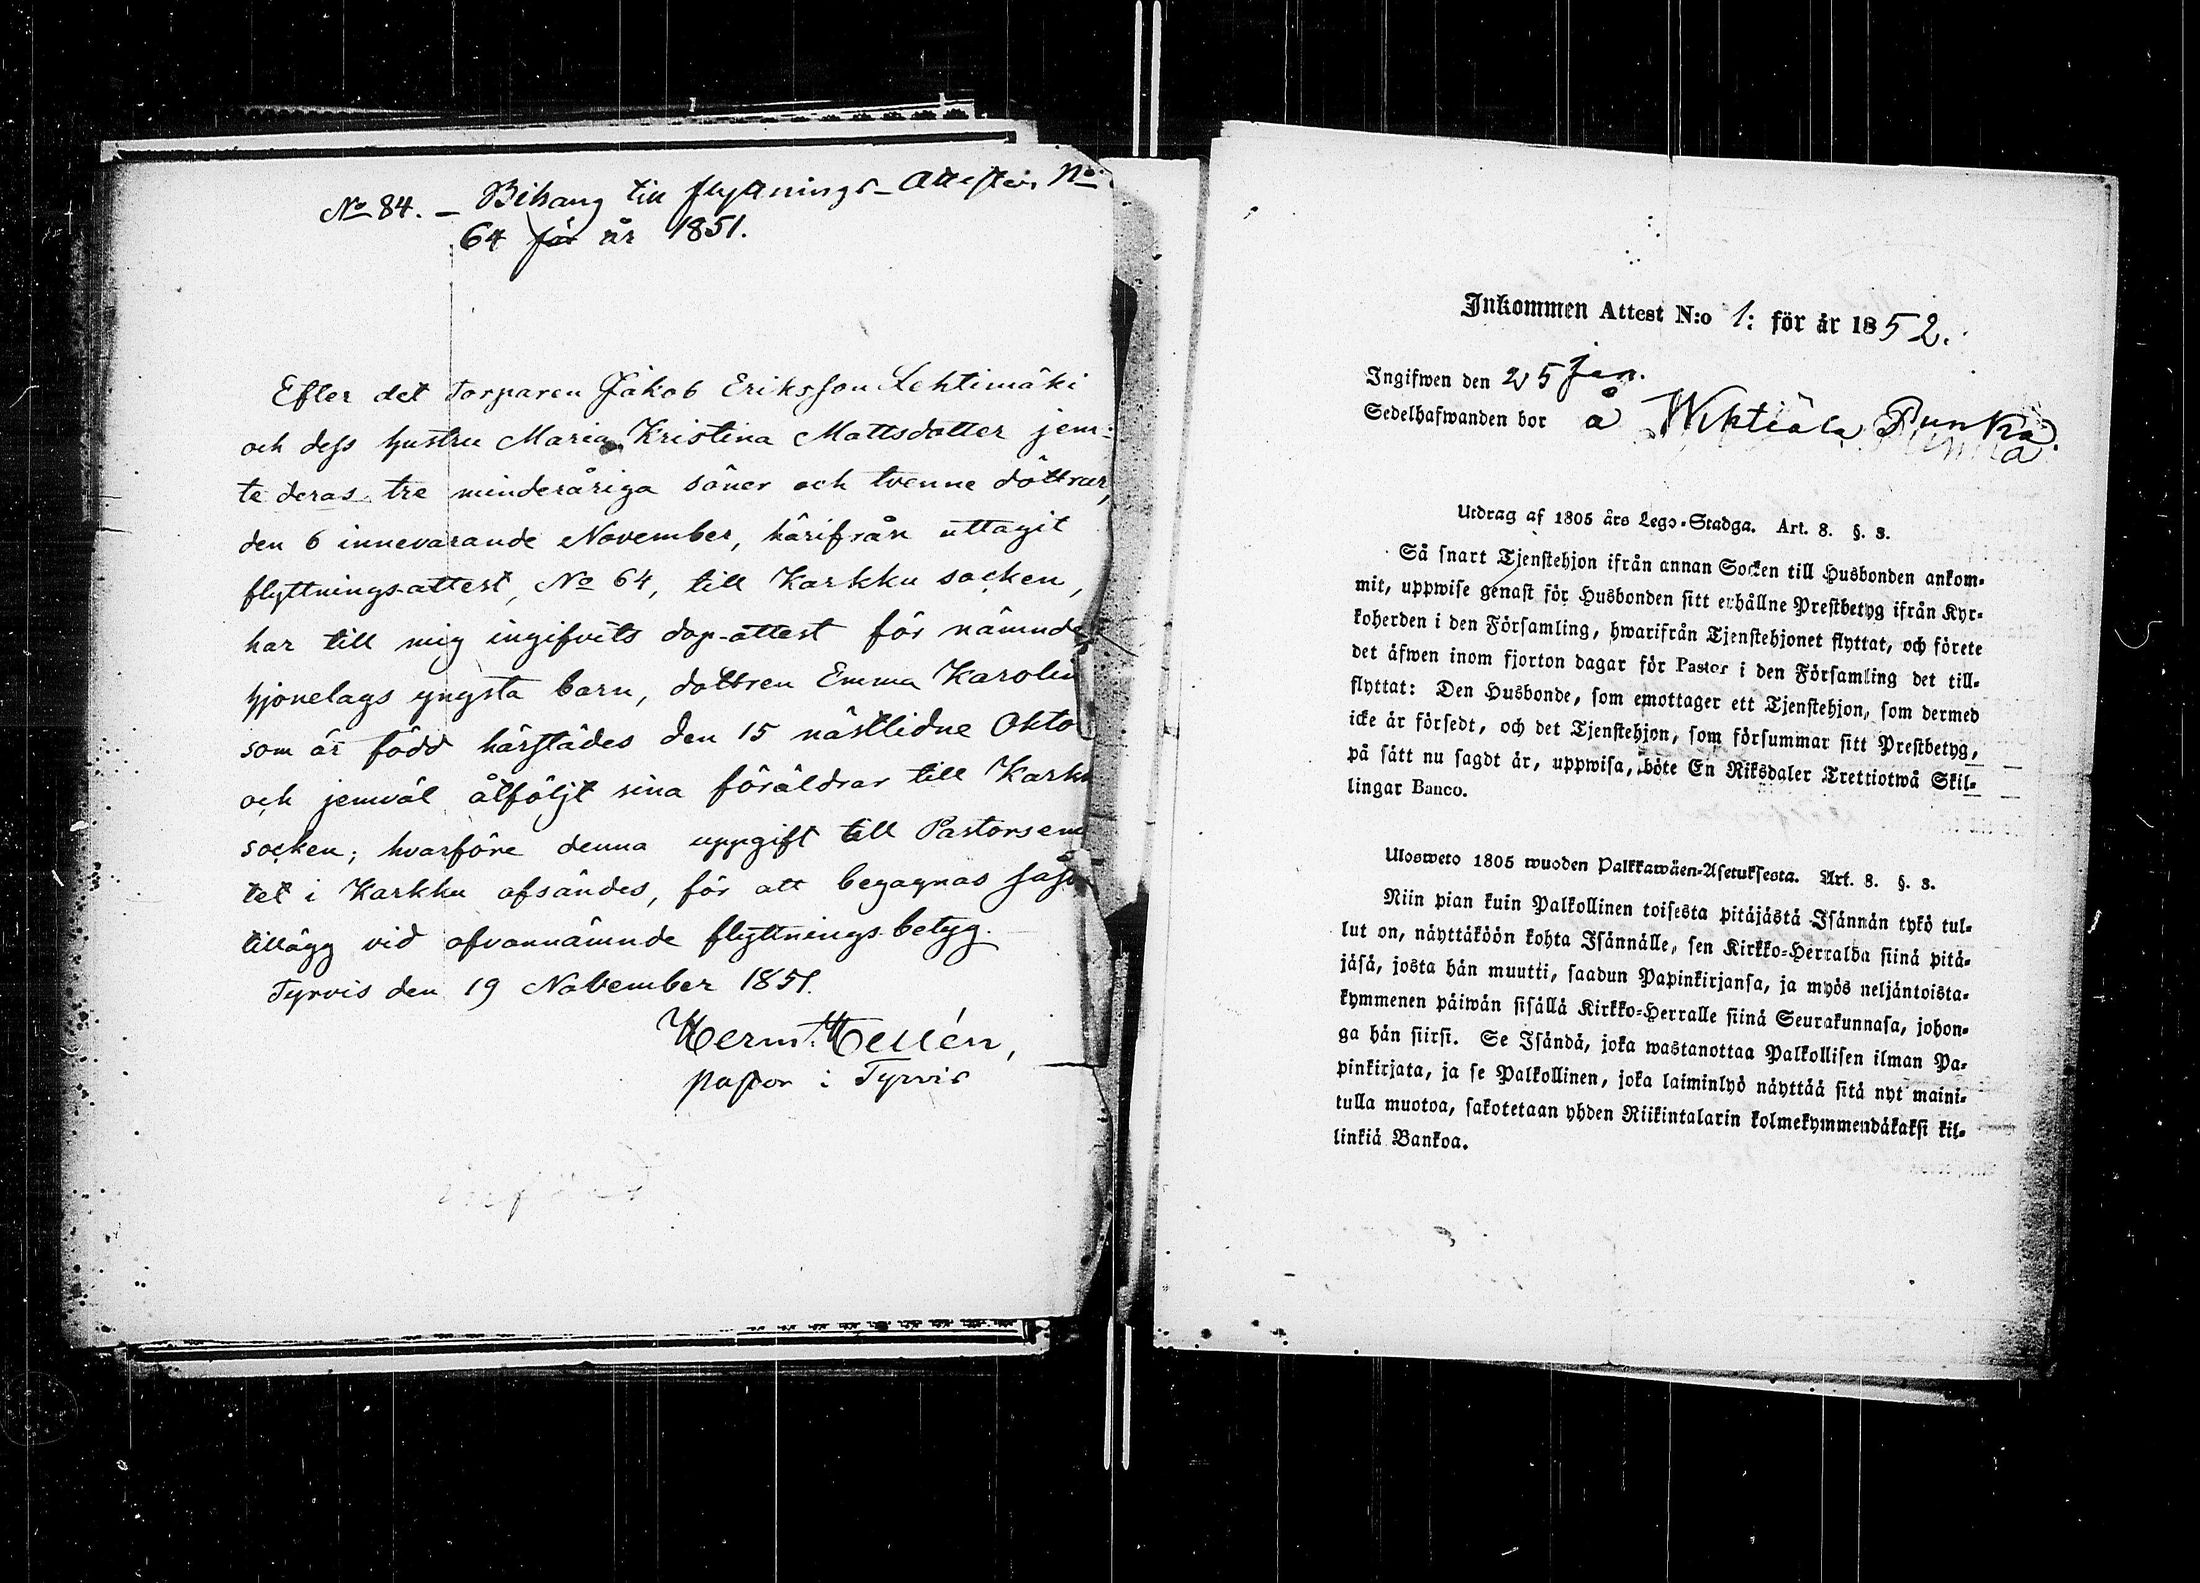 No 84. – Bihang till flyttnings-Attesten No
64 för år 1851.
Efter det Torparen Jakob Eriksson Lehtimäki
och dess hustru Maria Kristina Mattsdotter jem-
te deras tre minderåriga söner och tvenne döttrar,
den 6 innevarande November, härifrån uttagit
flyttnings-attest, No 64, till Karkku socken,
har till mig ingifvits dop-attest för nämnde
hjonelags yngsta barn, dottren Emma Karolin
som är född härstädes den 15 nästlidne Okto
och jemväl åtföljt sina föräldrar till Karkk
socken; hvarföre denna uppgift till Pastorsem
tet i Karkku afsändes, för att begagnas såso
tillägg vid ofvannämnde flyttnings-betyg.
Tyrvis den 19 November 1851.
Herm. Hellén,
pastor i Tyrvis
Inkommen Attest N:o 1: för år 1852.
Ingifwen den 25 Jan.
Sedelhafwanden bor å Wihtiälä Punka.
Utdrag af 1805 års Lego-Stadga. Art. 8. §. 3.
Så snart Tjenstehjon ifrån annan Socken till Husbonden ankom-
mit, uppwise genast för Husbonden sitt erhållne Prestbetyg ifrån Kyr-
koherden i den Församling, hwarifrån Tjenstehjonet flyttat, och förete
det äfwen inom fjorton dagar för Pastor i den Församling det till-
flyttat: Den Husbonde, som emottager ett Tjenstehjon, som dermed
icke är försedt, och det Tjenstehjon, som försummar sitt Prestbetyg,
på sätt nu sagdt är, uppwisa, böte En Riksdaler Trettiotwå Skil-
lingar Banco.
Ulosweto 1805 wuoden Palkkawäen-Asetuksesta. Art. 8. §. 3.
Niin pian kuin Palkollinen toisesta pitäjästä Isännän tykö tul-
lut on, näyttäköön kohta Isännälle, sen Kirkko-Herralda siinä pitä-
jäsä, josta hän muutti, saadun Papinkirjansa, ja myös neljäntoista-
kymmenen päiwän sisällä Kirkko-Herralle siinä Seurakunnasa, johon-
ga hän siirsi. Se Isändä, joka wastanottaa Palkollisen ilman Pa-
pinkirjata, ja se Palkollinen, joka laiminlyö näyttää sitä nyt maini-
tulla muotoa, sakotetaan yhden Riikintalarin kolmekymmendäkaksi kil-
linkiä Bankoa.